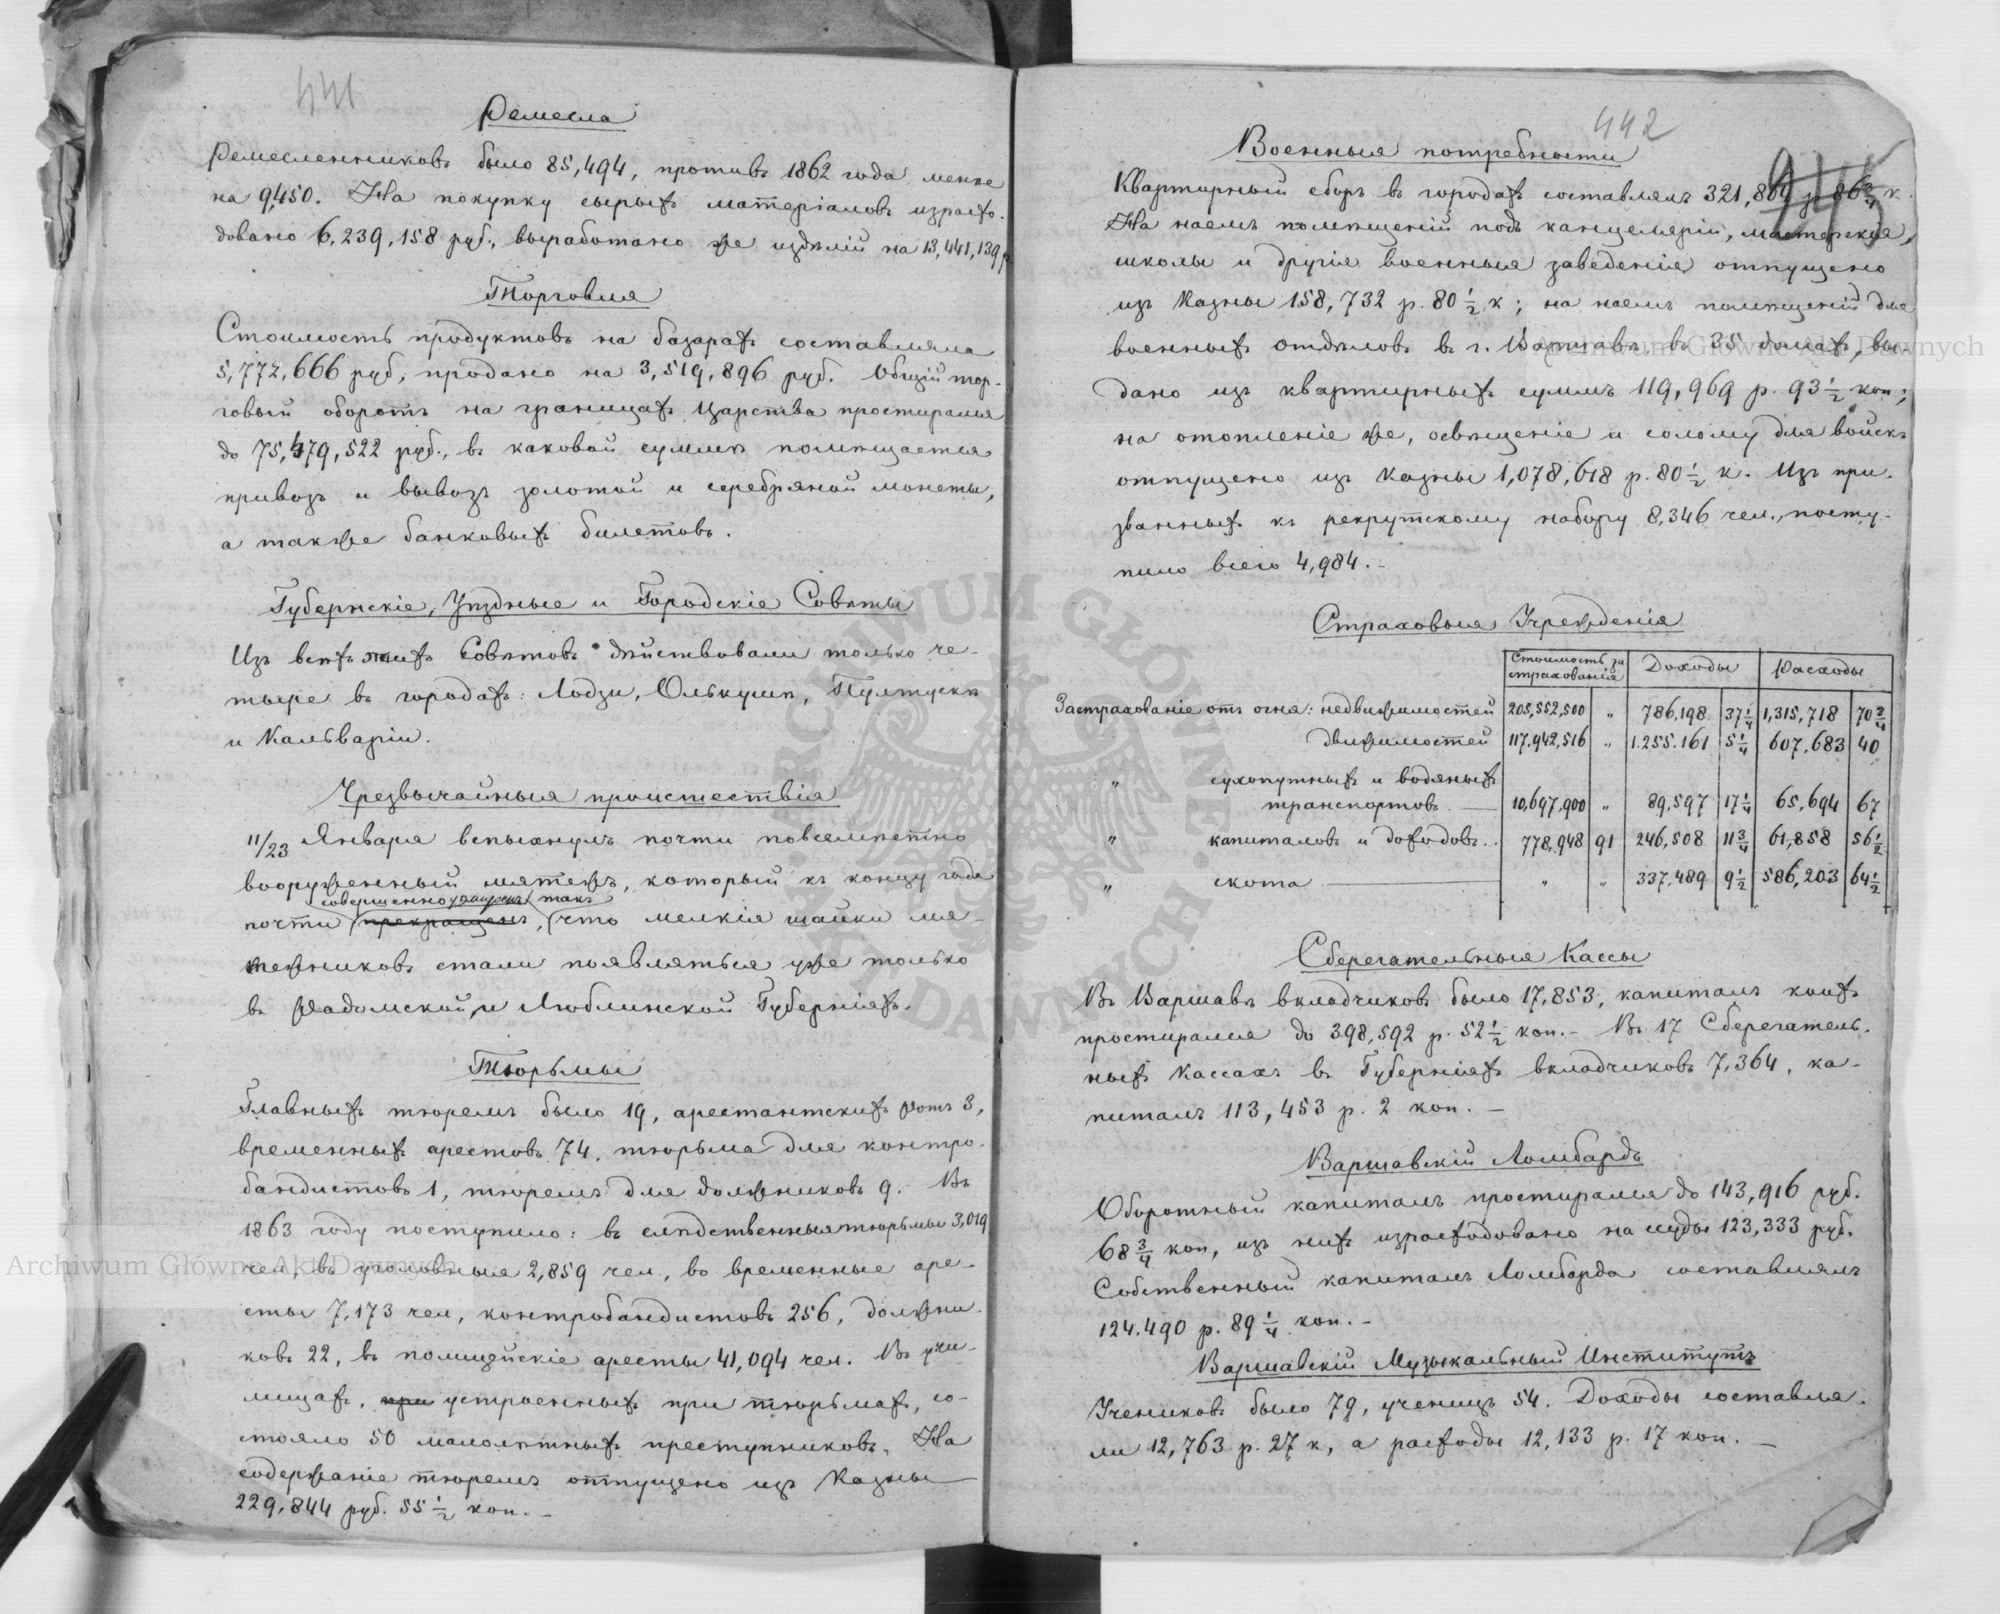 441
Ремесла
Ремесленниковъ было 85,494, противъ 1862 года менѣе
на 9,450. На покупку сырыхъ матеріаловъ израсхо-
довано 6,239,158 руб., выработано же издѣлій на 13,441,139 р.
Торговля
Стоимость продуктовъ на базарахъ составляла
5,772,666 руб., продано на 3,519,896 руб. Общій тор-
говый оборотъ на границахъ Царства простирался
до 75,479,522 руб., въ каковой суммѣ помѣщается
привозъ и вывозъ золотой и серебряной монеты,
а также банковыхъ билетовъ.
Губернскіе, Уѣздные и Городскіе Совѣты
Изъ всѣхъ этихъ Совѣтовъ дѣйствовали только че-
тыре въ городахъ: Лодзи, Олькушѣ, Пултускѣ
и Кальваріи.
Чрезвычайныя происшествія
11/23 Января вспыхнулъ почти повсемѣстно
вооруженный мятежъ, который къ концу года
совершенно такъ
почти прекращенъ, что мелкія шайки мя-
тежниковъ стали появляться уже только
въ Радомской, и Люблинской Губерніяхъ.
Тюрьмы
Главныхъ тюремъ было 19, арестантскихъ ротъ 3,
временныхъ арестовъ 74, тюрьма для контро-
бандистовъ 1, тюремъ для должниковъ 9. Въ
1863 году поступило: въ слѣдственныя тюрьмы 3,019
чел., въ уголовныя 2,859 чел., во временные аре-
сты 7,173 чел., контробандистовъ 256, должни-
ковъ 22, въ полицейскіе аресты 41,094 чел. Въ учи-
лищахъ, при устроенныхъ при тюрьмахъ, со-
стояло 50 малолѣтныхъ преступниковъ. На
содержаніе тюремъ отпущено изъ Казны
229,844 руб. 55 1/2 коп.
442
Военныя потребности
Квартирный сборъ въ городахъ составлялъ 321,804 р. 86 3/4 к.
На наемъ помѣщеній подъ канцеляріи, мастерскія,
школы и другія военныя заведенія отпущено
изъ Казны 158,732 р. 80 1/2 к; на наемъ помѣщеній для
военныхъ отдѣловъ въ г. Варшавѣ, въ 35 домахъ, вы-
дано изъ квартирныхъ суммъ 119,969 р. 93 1/2 коп.;
на отопленіе же, освѣщеніе и солому для войскъ
отпущено изъ Казны 1,078,618 р. 80 1/2 к. Изъ при-
званныхъ къ рекрутскому набору 8,346 чел., посту-
пило всего 4,984.
Страховыя Учрежденія
Стоимость за страхованія Доходы Расходы
Застрахованіе отъ огня: недвижимостей 205,552,500 " 786,198 37 1/4 1,315,718 70 3/4
движимостей 117.942,516 " 1.255.161 5 1/4 607,683 40
" сухопутныхъ и водяныхъ
транспортовъ 10,697,900 " 89,597 17 1/4 65,694 67
" капиталовъ и доходовъ 778,948 91 246,508 11 3/4 61,858 56 1/2
" скота " " 337,489 9 1/2 586,203 64 1/2
Сберегательныя Кассы
Въ Варшавѣ вкладчиковъ было 17,853, капиталъ коихъ
простирался до 398,592 р. 52 1/2 коп. - Въ 17 Сберегатель-
ныхъ Кассахъ въ Губерніяхъ вкладчиковъ 7,364, ка-
питалъ 113,453 р. 2 коп. -
Варшавскій Ломбардъ
Оборотный капиталъ простирался до 143,916 руб.
68 3/4 коп, изъ нихъ израсходовано на ссуды 123,333 руб.
Собственный капиталъ Ломбарда составлялъ
124.490 р. 89 1/4 коп. -
Варшавскій Музыкальный Институтъ
Учениковъ было 79, ученицъ 54. Доходы составля-
ли 12,763 р. 27 к, а расходы 12,133 р. 17 коп. -
Archiwum Główne Akt Dawnych
Archiwum Główne Akt Dawnych
ARCHIWUM GŁÓWNE AKT DAWNYCH